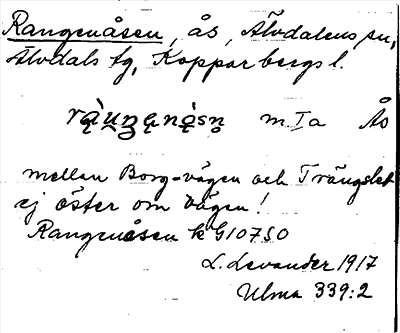 Rangenåsen, ås, Älvdalens sn,
Älvdals tg, Kopparbergs l.
m. Ia Ås
mellan Borg-vägen och Trängslet
ej öster om vägen!
Rangenåsen k G10750
L. Levander 1917
Ulma 339:2